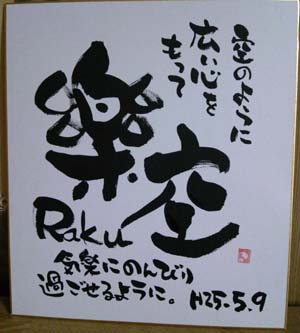 空のように
広い心を
もって
楽空
Raku
気楽にのんびり
過ごせるように。
H25.5.9